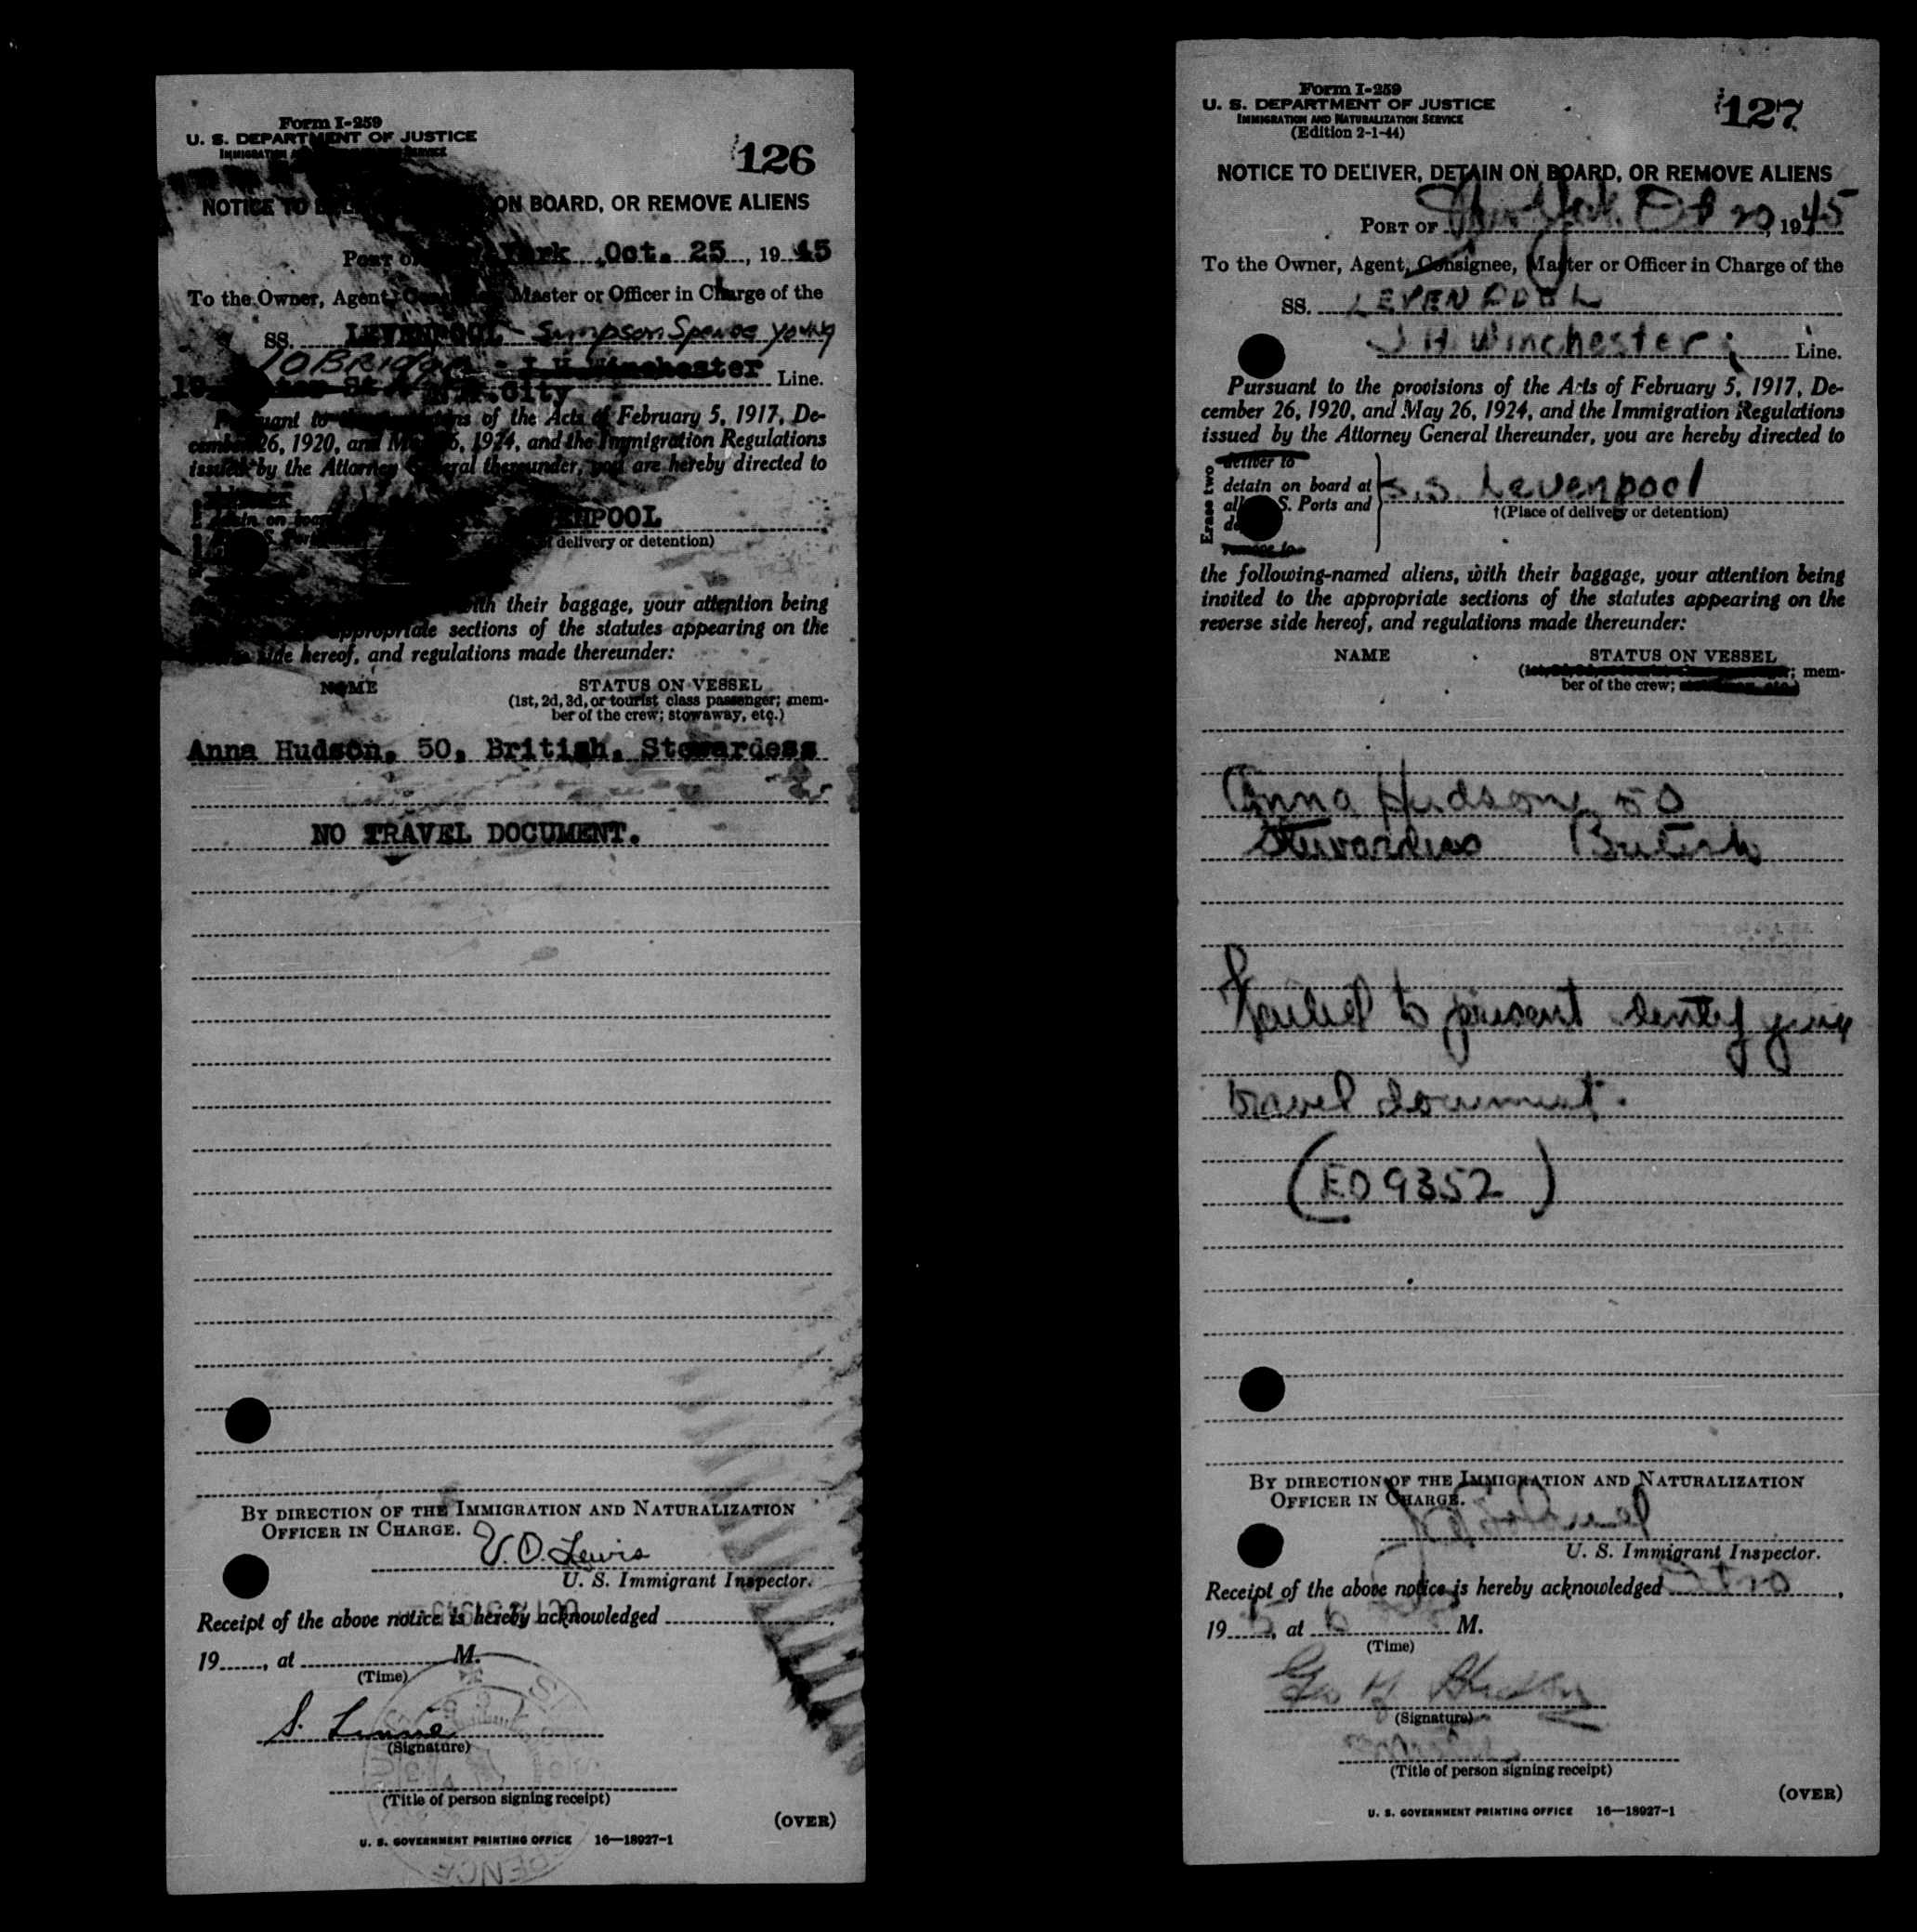 Form I-259
U. S. DEPARTMENT OF JUSTICE
IMMIGRATION SERVICE
126
NOTICE TO ON BOARD, OR REMOVE ALIENS
PORT OF York Oct. 25, 19 45
To the Owner, Agent, Master or Officer in Charge of the
SS. LEVENPOOL Simpson Spence Young
10 BRIDGE Winchester Line.
St. City
Pursuant to of the Acts of February 5, 1917, De-
cember 26, 1920, and May 26, 1924, and the Immigration Regulations
issued by the Attorney General thereunder, you are hereby directed to
detain on board
ENPOOL
delivery or detention)
with their baggage, your attention being
appropriate sections of the statutes appearing on the
side hereof, and regulations made thereunder:
NAME STATUS ON VESSEL
(1st, 2d, 3d, or tourist class passenger; mem-
ber of the crew; stowaway, etc.)
Anna Hudson, 50, British, Stewardess
NO TRAVEL DOCUMENT.
BY DIRECTION OF THE IMMIGRATION AND NATURALIZATION
OFFICER IN CHARGE.
V. O. Lewis
U. S. Immigrant Inspector.
Receipt of the above notice is hereby acknowledged
19, at M.
(Time)
S.
(Signature)
(Title of person signing receipt)
(OVER)
U. S. GOVERNMENT PRINTING OFFICE 16—18927-1
Form I-259
U. S. DEPARTMENT OF JUSTICE
IMMIGRATION AND NATURALIZATION SERVICE
(Edition 2-1-44)
127
NOTICE TO DELIVER, DETAIN ON BOARD, OR REMOVE ALIENS
PORT OF New York Oct 20, 1945
To the Owner, Agent, Consignee, Master or Officer in Charge of the
SS. LEVENPOOL
J H Winchester Line.
Pursuant to the provisions of the Acts of February 5, 1917, De-
cember 26, 1920, and May 26, 1924, and the Immigration Regulations
issued by the Attorney General thereunder, you are hereby directed to
Erase two
deliver to
detain on board at
all S. Ports and
remove to
S.S. Levenpool
†(Place of delivery or detention)
the following-named aliens, with their baggage, your attention being
invited to the appropriate sections of the statutes appearing on the
reverse side hereof, and regulations made thereunder:
NAME STATUS ON VESSEL
; mem-
ber of the crew;
Anna Hudson 50
Stewardess British
Failed to present identifying
travel document.
(EO 9352)
BY DIRECTION OF THE IMMIGRATION AND NATURALIZATION
OFFICER IN CHARGE.
U. S. Immigrant Inspector.
Receipt of the above notice is hereby acknowledged
19 5, at 6 M.
(Time)
(Signature)
(Title of person signing receipt)
(OVER)
U. S. GOVERNMENT PRINTING OFFICE 16—18927-1